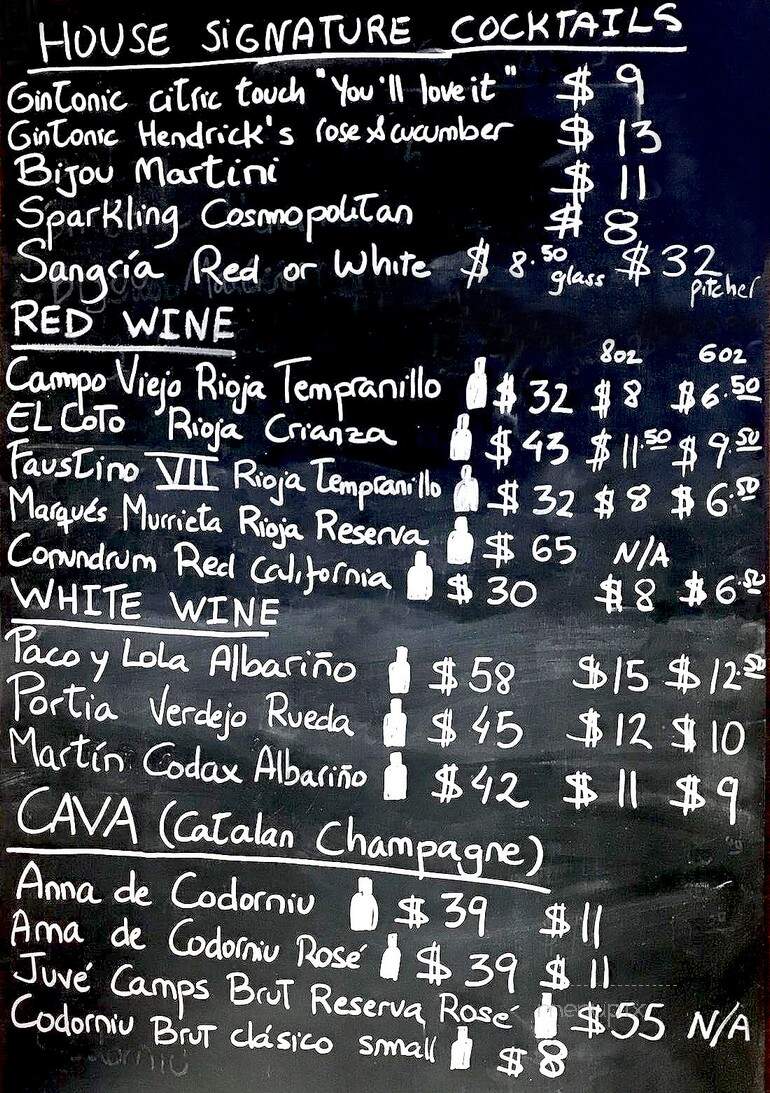 HOUSE SIGNATURE COCKTAILS
GinTonic citric touch "You'll love it" $ 9
GinTonic Hendrick's rose & cucumber $ 13
Bijou Martini $ 11
Sparkling Cosmopolitan $ 8
Sangría Red or White $ 8.50 glass $ 32 pitcher
RED WINE
8oz 6oz
Campo Viejo Rioja Tempranillo $ 32 $ 8 $ 6.50
EL Coto Rioja Crianza $ 43 $ 11.50 $ 9.50
Faustino VII Rioja Tempranillo $ 32 $ 8 $ 6.50
Marqués Murrieta Rioja Reserva $ 65 N/A
Conundrum Red California $ 30 $ 8 $ 6.50
WHITE WINE
Paco y Lola Albariño $ 58 $ 15 $ 12.50
Portia Verdejo Rueda $ 45 $ 12 $ 10
Martín Codax Albariño $ 42 $ 11 $ 9
CAVA (Catalan Champagne)
Anna de Codorniu $ 39 $ 11
Anna de Codorniu Rosé $ 39 $ 11
Juvé Camps Brut Reserva Rosé $ 55 N/A
Codorniu Brut clásico small $ 8